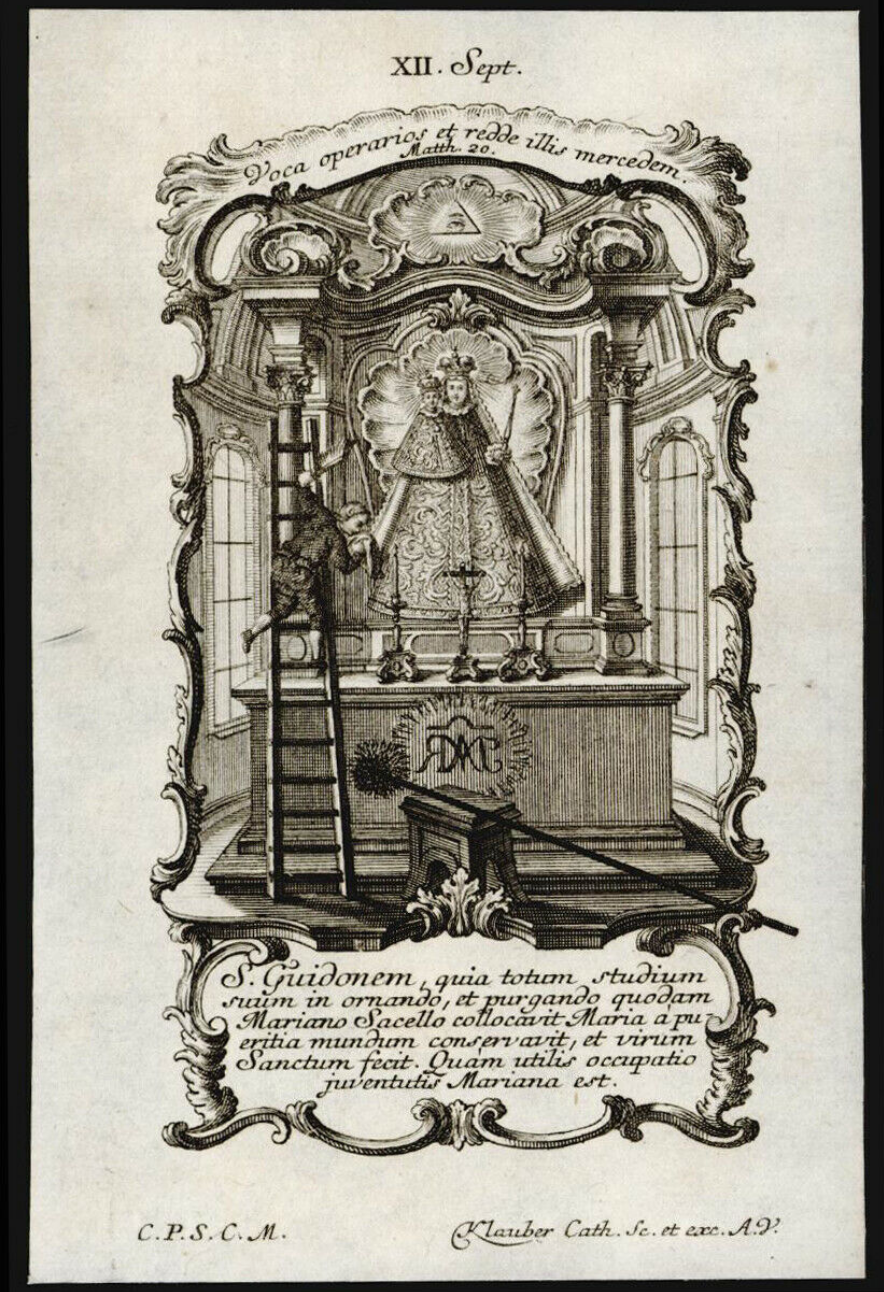 XII. Sept.
Voca operarios et redde illis mercedem.
Matth. 20.
S. Guidonem, quia totum studium
suum in ornando, et purgando quodam
Mariano Sacello collocavit Maria a pu-
eritia mundum conservavit, et virum
Sanctum fecit. Quàm utilis occupatio
juventutis Mariana est.
C. P. S. C. M.
Klauber Cath. Sc. et exc. A. V.